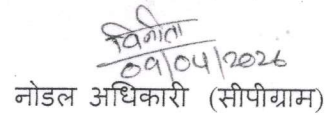 विनीता
09/04/2026
नोडल अधिकारी (सीपीग्राम)